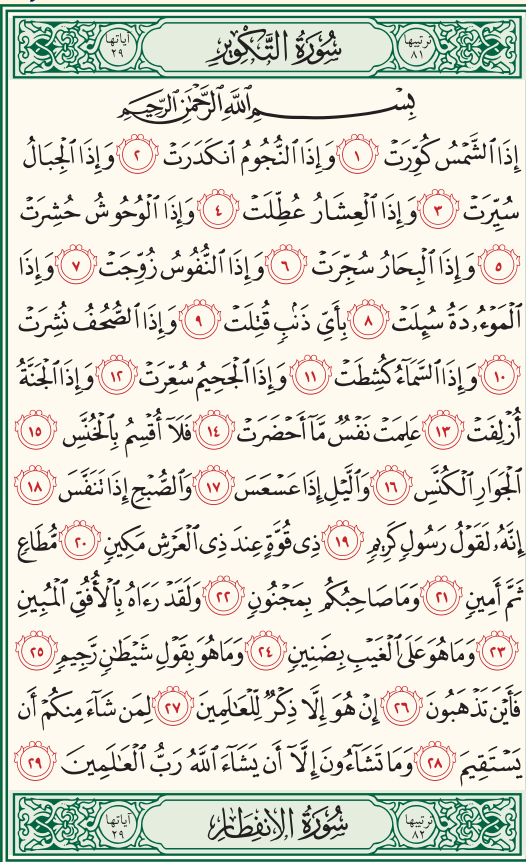 ترتيبها ٨١ سُورَةُ التَّكْوِيرِ آياتها ٢٩
بِسْمِ ٱللَّهِ ٱلرَّحْمَٰنِ ٱلرَّحِيمِ
إِذَا ٱلشَّمْسُ كُوِّرَتْ ١ وَإِذَا ٱلنُّجُومُ ٱنكَدَرَتْ ٢ وَإِذَا ٱلْجِبَالُ
سُيِّرَتْ ٣ وَإِذَا ٱلْعِشَارُ عُطِّلَتْ ٤ وَإِذَا ٱلْوُحُوشُ حُشِرَتْ
٥ وَإِذَا ٱلْبِحَارُ سُجِّرَتْ ٦ وَإِذَا ٱلنُّفُوسُ زُوِّجَتْ ٧ وَإِذَا
ٱلْمَوْءُۥدَةُ سُئِلَتْ ٨ بِأَىِّ ذَنۢبٍ قُتِلَتْ ٩ وَإِذَا ٱلصُّحُفُ نُشِرَتْ
١٠ وَإِذَا ٱلسَّمَآءُ كُشِطَتْ ١١ وَإِذَا ٱلْجَحِيمُ سُعِّرَتْ ١٢ وَإِذَا ٱلْجَنَّةُ
أُزْلِفَتْ ١٣ عَلِمَتْ نَفْسٌ مَّآ أَحْضَرَتْ ١٤ فَلَآ أُقْسِمُ بِٱلْخُنَّسِ ١٥
ٱلْجَوَارِ ٱلْكُنَّسِ ١٦ وَٱلَّيْلِ إِذَا عَسْعَسَ ١٧ وَٱلصُّبْحِ إِذَا تَنَفَّسَ ١٨
إِنَّهُۥ لَقَوْلُ رَسُولٍ كَرِيمٍ ١٩ ذِى قُوَّةٍ عِندَ ذِى ٱلْعَرْشِ مَكِينٍ ٢٠ مُّطَاعٍ
ثَمَّ أَمِينٍ ٢١ وَمَا صَاحِبُكُم بِمَجْنُونٍ ٢٢ وَلَقَدْ رَءَاهُ بِٱلْأُفُقِ ٱلْمُبِينِ
٢٣ وَمَا هُوَ عَلَى ٱلْغَيْبِ بِضَنِينٍ ٢٤ وَمَا هُوَ بِقَوْلِ شَيْطَٰنٍ رَّجِيمٍ ٢٥
فَأَيْنَ تَذْهَبُونَ ٢٦ إِنْ هُوَ إِلَّا ذِكْرٌ لِّلْعَٰلَمِينَ ٢٧ لِمَن شَآءَ مِنكُمْ أَن
يَسْتَقِيمَ ٢٨ وَمَا تَشَآءُونَ إِلَّآ أَن يَشَآءَ ٱللَّهُ رَبُّ ٱلْعَٰلَمِينَ ٢٩
ترتيبها ٨٢ سُورَةُ الِانفِطَارِ آياتها ٢٩